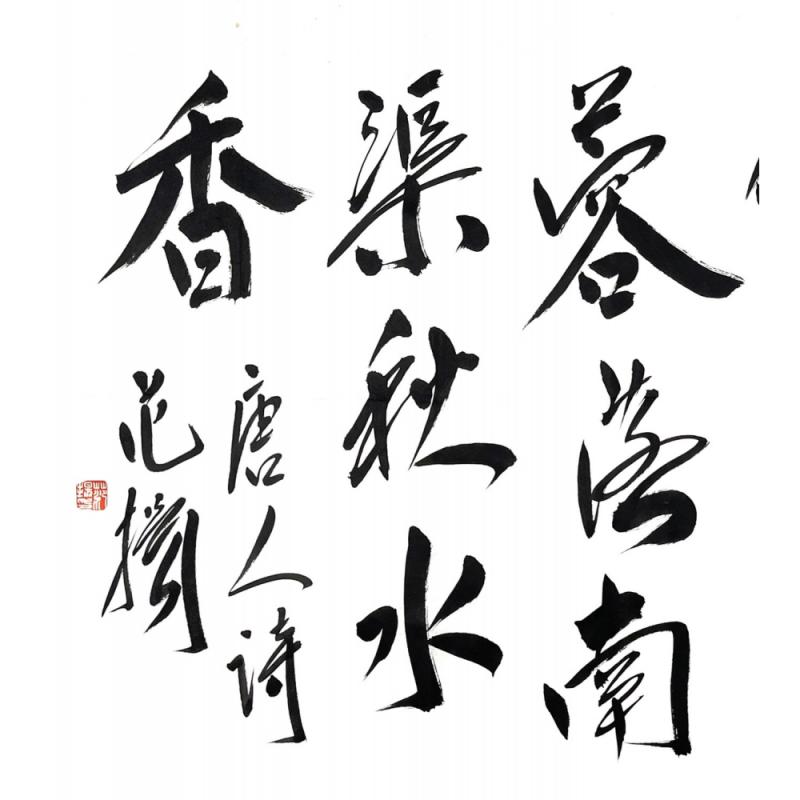 蓉落南
渠秋水
香
唐人诗
范